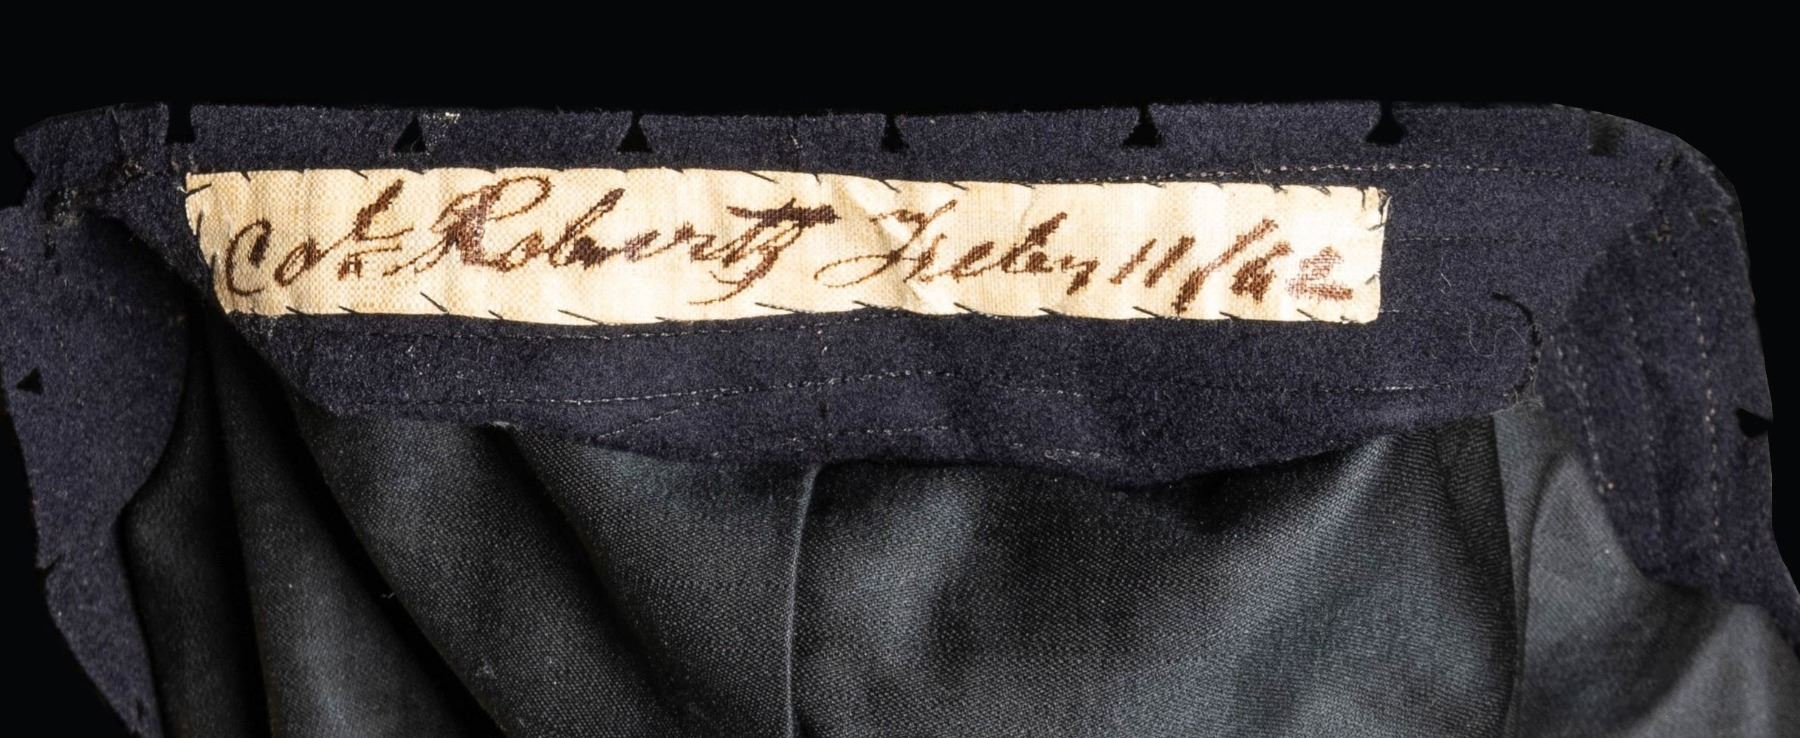 Col. Roberts Feby 11/62